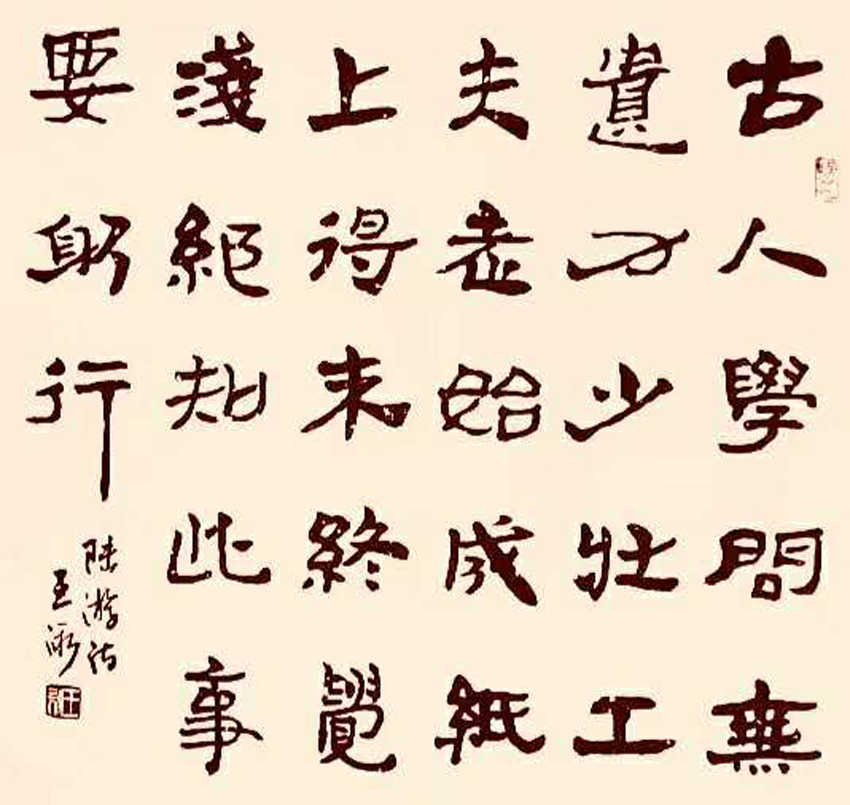 古人學問無
遺力少壯工
夫老始成紙
上得来終覺
淺絕知此事
要躬行
陸游詩
王